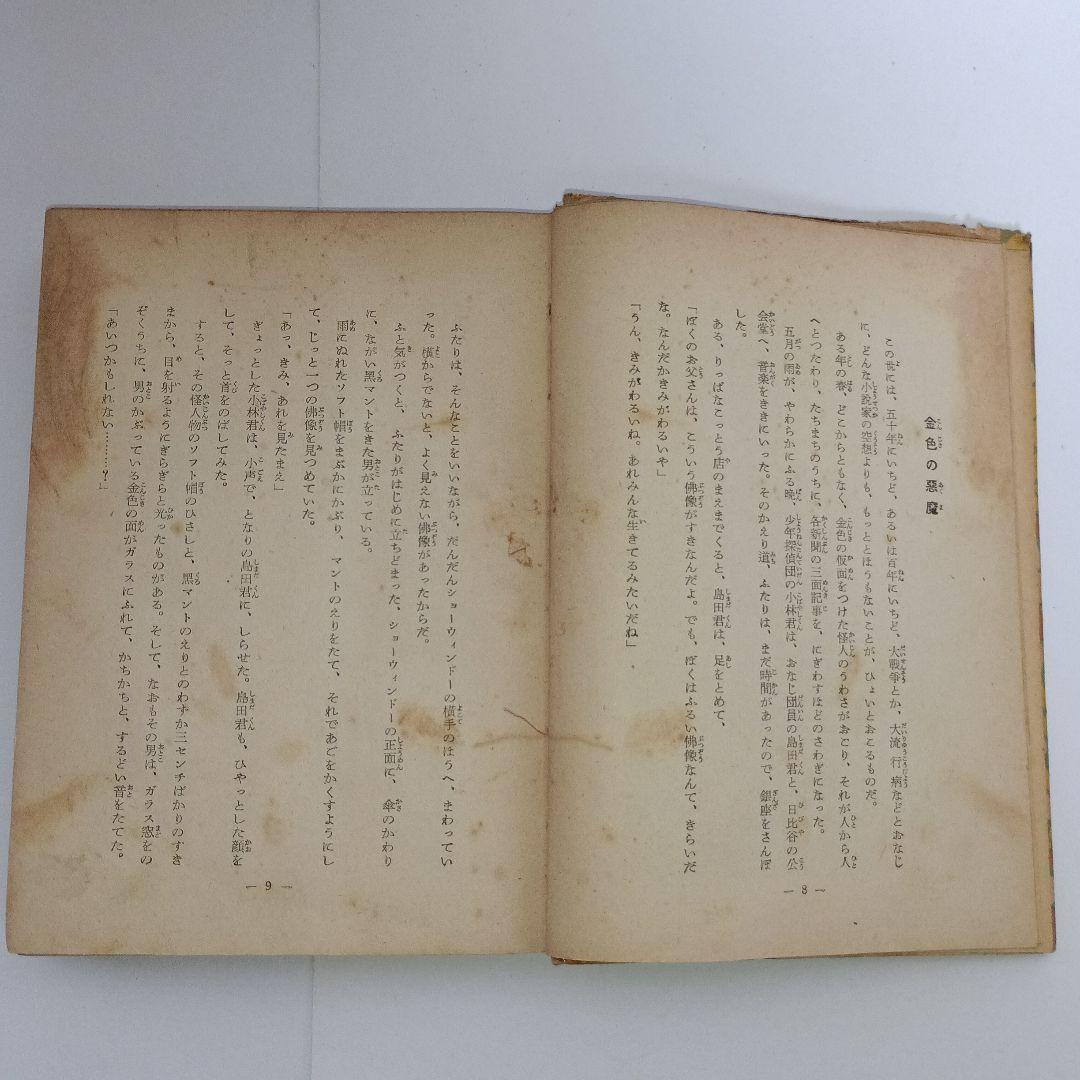 金色の惡魔
この世には、五十年にいちど、あるいは百年にいちど、大戰爭とか、大流行病などとおなじ
に、どんな小説家の空想よりも、もっととほうもないことが、ひょいとおこるものだ。
ある年の春、どこからともなく、金色の仮面をつけた怪人のうわさがおこり、それが人から人
へとつたわり、たちまちのうちに、各新聞の三面記事を、にぎわすほどのさわぎになった。
五月の雨が、やわらかにふる晩、少年探偵団の小林君は、おなじ団員の島田君と、日比谷の公
会堂へ、音楽をききにいった。そのかえり道、ふたりは、まだ時間があったので、銀座をさんぽ
した。
ある、りっぱなこっとう店のまえまでくると、島田君は、足をとめて、
「ぼくのお父さんは、こういう佛像がすきなんだよ。でも、ぼくはふるい佛像なんて、きらいだ
な。なんだかきみがわるいや」
「うん、きみがわるいね。あれみんな生きてるみたいだね」
― 8 ―
ふたりは、そんなことをいいながら、だんだんショーウィンドーの横手のほうへ、まわってい
った。横からでないと、よく見えない佛像があったからだ。
ふと気がつくと、ふたりがはじめに立ちどまった、ショーウィンドーの正面に、傘のかわり
に、ながい黒マントをきた男が立っている。
雨にぬれたソフト帽をまぶかにかぶり、マントのえりをたて、それであごをかくすようにし
て、じっと一つの佛像を見つめていた。
「あっ、きみ、あれを見たまえ」
ぎょっとした小林君は、小声で、となりの島田君に、しらせた。島田君も、ひやっとした顔を
して、そっと首をのばしてみた。
すると、その怪人物のソフト帽のひさしと、黒マントのえりとのわずか三センチばかりのすき
まから、目を射るようにぎらぎらと光ったものがある。そして、なおもその男は、ガラス窓をの
ぞくうちに、男のかぶっている金色の面がガラスにふれて、かちかちと、するどい音をたてた。
「あいつかもしれない………？」
― 9 ―